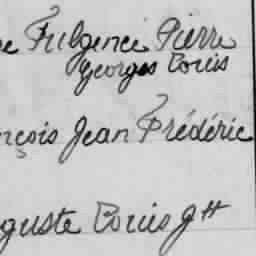 e Fulgence Pierre
Georges Louis
nçois Jean Frédéric
guste Louis Jh